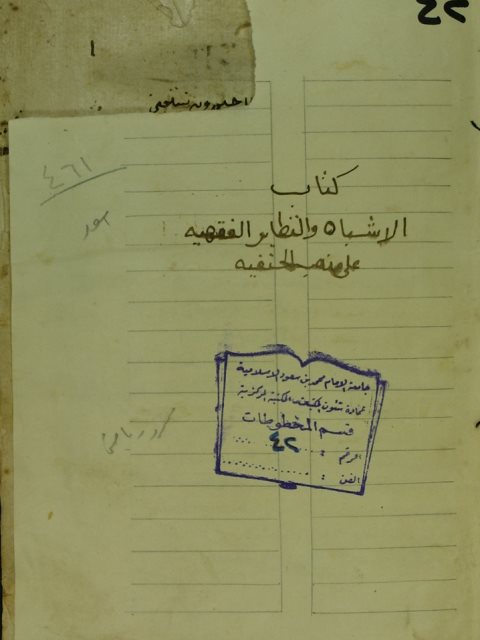 ٤٢
٤٦١
كتاب
الاشباه والنظاير الفقهيه
على مذهب الحنفيه
جامعة الإمام محمد بن سعود الإسلامية
عمادة شئون المكتبات المكتبة المركزية
قسم المخطوطات
الرقم : ٤٢
الفن :